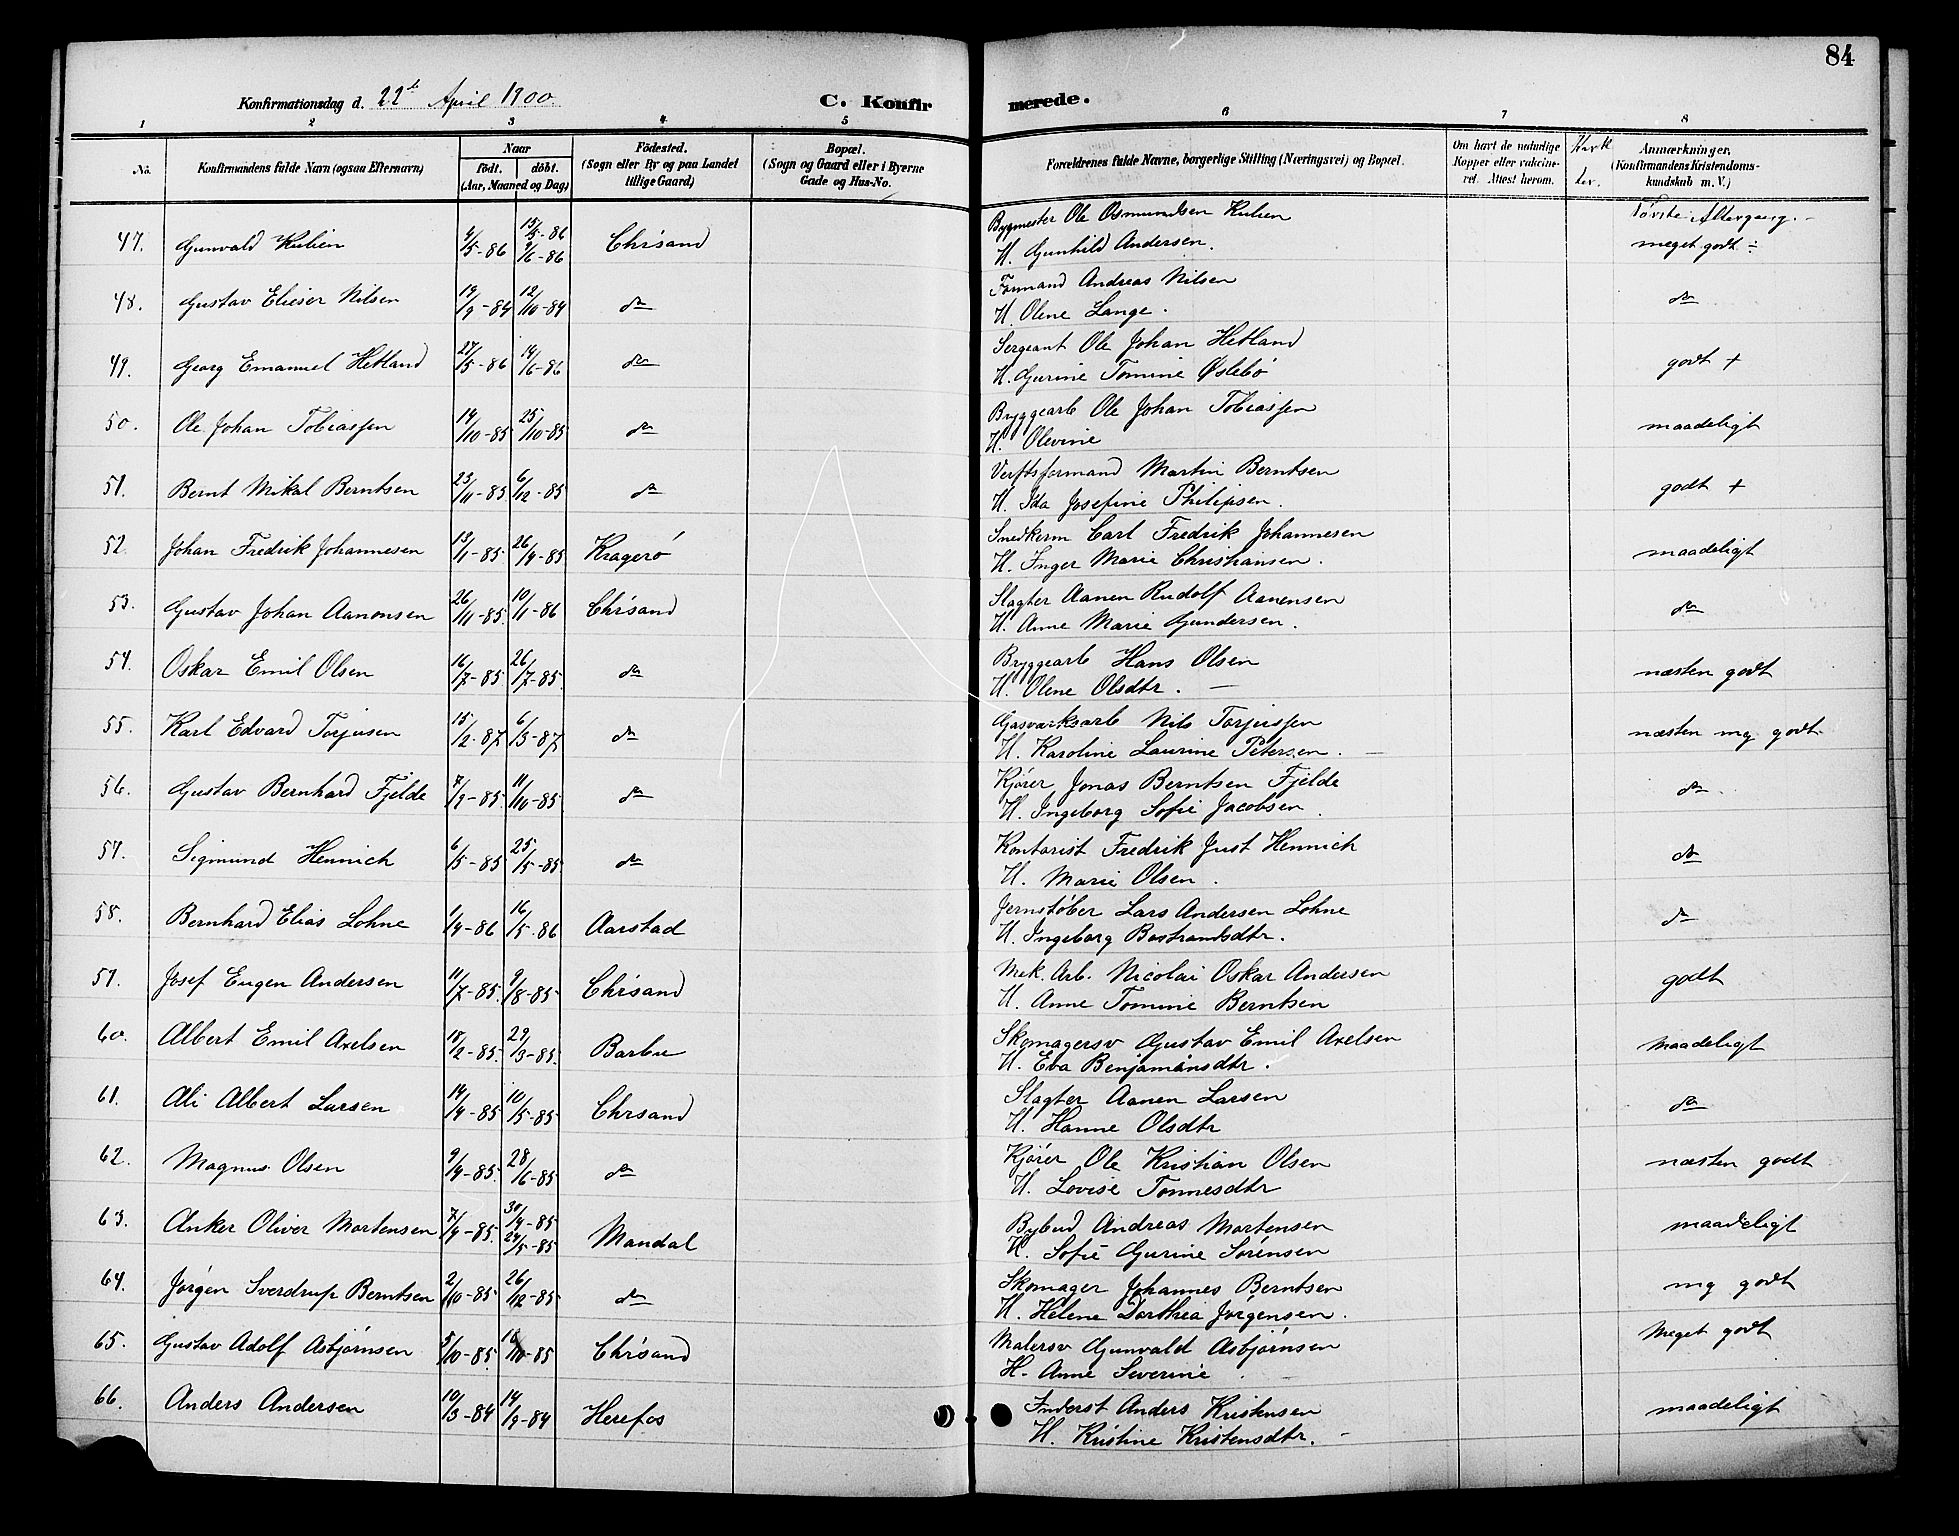 84
Konfirmationsdag d. 22de April 1900. C. Konfirmerede.
1 2 3 4 5 6 7 8
No. Konfirmandens fulde Navn (ogsaa Efternavn) Naar födt. döbt. (Aar, Maaned og Dag) Födested. (Sogn eller By og paa Landet tillige Gaard) Bopæl. (Sogn og Gaard eller i Byerne Gade og Hus-No.
Forældrenes fulde Navne, borgerlige Stilling (Næringsvei) og Bopæl. Om havt de naturlige Kopper eller vaccineret. Attest herom. Anmærkninger, (Konfirmandens Kristendomskundskab m. V.)
første Altergang.
47. Gunvald Kulien 4/5-86 15/5-86 9/6-86 Chrsand Bygmester Ole Osmundsen Kulien meget godt ÷
H. Gunhild Andersen.
48. Gustav Elieser Nilsen 19/9-84 12/10-84 do Formand Andreas Nilsen do
H. Olene Lange.
49. Georg Emanuel Hetland 27/5-86 14/6-86 do Sergeant Ole Johan Hetland godt +
H. Gurine Tomine Øslebö
50. Ole Johan Tobiassen 14/10-85 25/10-85 do Bryggearb Ole Johan Tobiassen maadeligt
H. Olevine
51. Bernt Mikal Berntsen 23/11-85 6/12-85 do Verftsformand Martin Berntsen godt +
H. Ida Josefine Philipsen.
52. Johan Fredrik Johannesen 13/1-85. 26/4-85 Kragerö Snedkerm Carl Fredrik Johannesen maadeligt
H. Inger Marie Christiansen.
53. Gustav Johan Aanonsen 26/11-85. 10/1-86 Chrsand Slagter Aanen Rudolf Aanensen do
H. Anne Marie Gundersen.
54. Oskar Emil Olsen 16/7-85 26/7-85. do Bryggearb Hans Olsen næsten godt
H. Olene Olsdtr.
55. Karl Edvard Torjusen 15/2-87 6/3-87 do Gasværksarb Nils Torjussen næsten mg godt
H. Karoline Laurine Petersen.
56. Gustav Bernhard Fjelde 7/9-85 11/10-85 do Kjörer Jonas Berntsen Fjelde do
H. Ingeborg Sofie Jacobsen
57. Sigmund Hennich 6/5-85 25/5-85 do Kontorist Fredrik Just Hennich do
H. Marie Olsen.
58. Bernhard Elias Lohne 1/4-86 16/5-86 Aarstad Jernstöber Lars Andersen Lohne do
H. Ingeborg Bostrandsdtr.
59. Josef Eugen Andersen 11/7-85. 9/8-85 Chrsand Mek. Arb. Nicolai Oskar Andersen godt
H. Anne Tomine Berntsen
60. Albert Emil Axelsen 18/2-85. 29/3-85. Barbu Skomagersv Gustav Emil Axelsen maadeligt
H. Eva Benjaminsdtr.
61. Ali Albert Larsen 14/4-85 10/5-85 Chrsand Slagter Aanen Larsen do
H. Hanne Olsdtr
62. Magnus Olsen 9/4-85. 28/6-85 do Kjörer Ole Kristian Olsen næsten godt
H. Lovise Tonnesdtr
63. Anker Oliver Mortensen 7/4-85. 30/4-85 24/5-85 Mandal Bybud Andreas Mortensen maadeligt
H. Sofie Gurine Sörensen
64. Jörgen Sverdrup Berntsen 2/10-85 26/12-85 do Skomager Johannes Berntsen mg godt
H. Helene Dorthea Jörgensen.
65. Gustav Adolf Asbjörnsen 5/10-85. 18/10-85 Chrsand Malersv Gunvald Asbjörnsen Meget godt
H. Anne Severine
66. Anders Andersen 10/3-84 14/9-84 Herefos Inderst Anders Kristensen maadeligt
H. Kristine Kristensdtr.